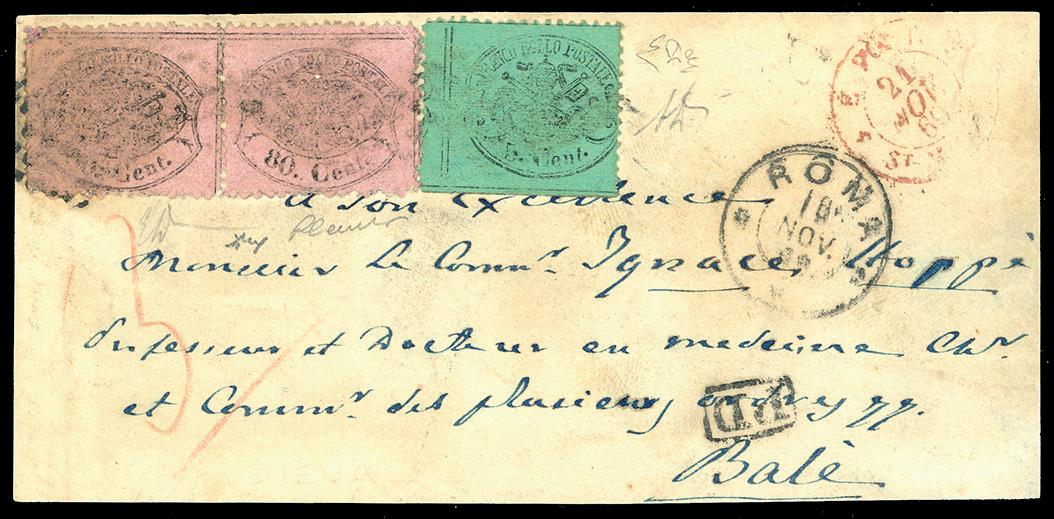 FRANCO BOLLO POSTALE
Cent.
FRANCO BOLLO POSTALE
80. Cent.
FRANCO BOLLO POSTALE
5. Cent.
21
NOV
69
ROMA
18
NOV.
A Son Excellence
Monsieur Le Commr. Ignace Hoppe
Professeur et Docteur en medecine Chr.
et Commr. des plusieurs ordres
PD
Balè